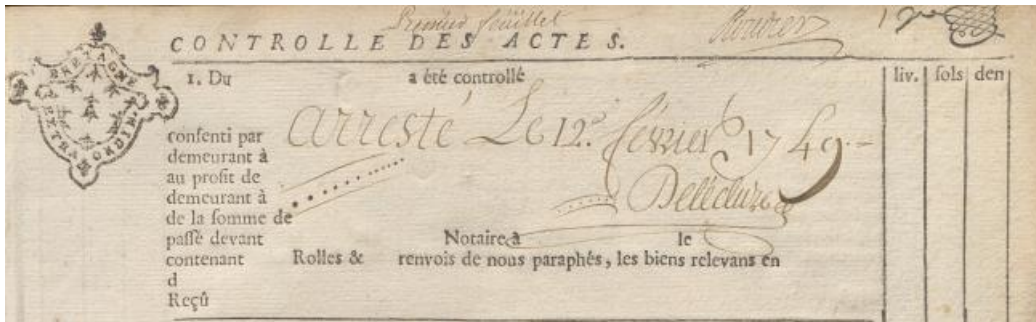 Premier feüillet
CONTROLLE DES ACTES.
BRETAGNE
EXTRAORDIN.
1. Du a été controllé
liv. sols den
arresté Le 12.e fevrier 1749.
consenti par
demeurant à
au profit de
demeurant à
de la somme de
passé devant Notaire à le
contenant Rolles & renvois de nous paraphés, les biens relevans en
d
Reçû